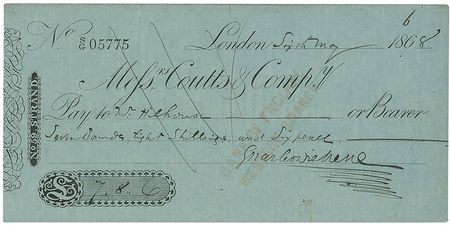 6
No S/G 05775 London Sixth May 1868
Messrs Coutts & Compy
No 59 STRAND
Pay to Mr Hilhouse or Bearer
Seven Pounds Eight Shillings and Sixpence
Charles Dickens
£ 7.8.6